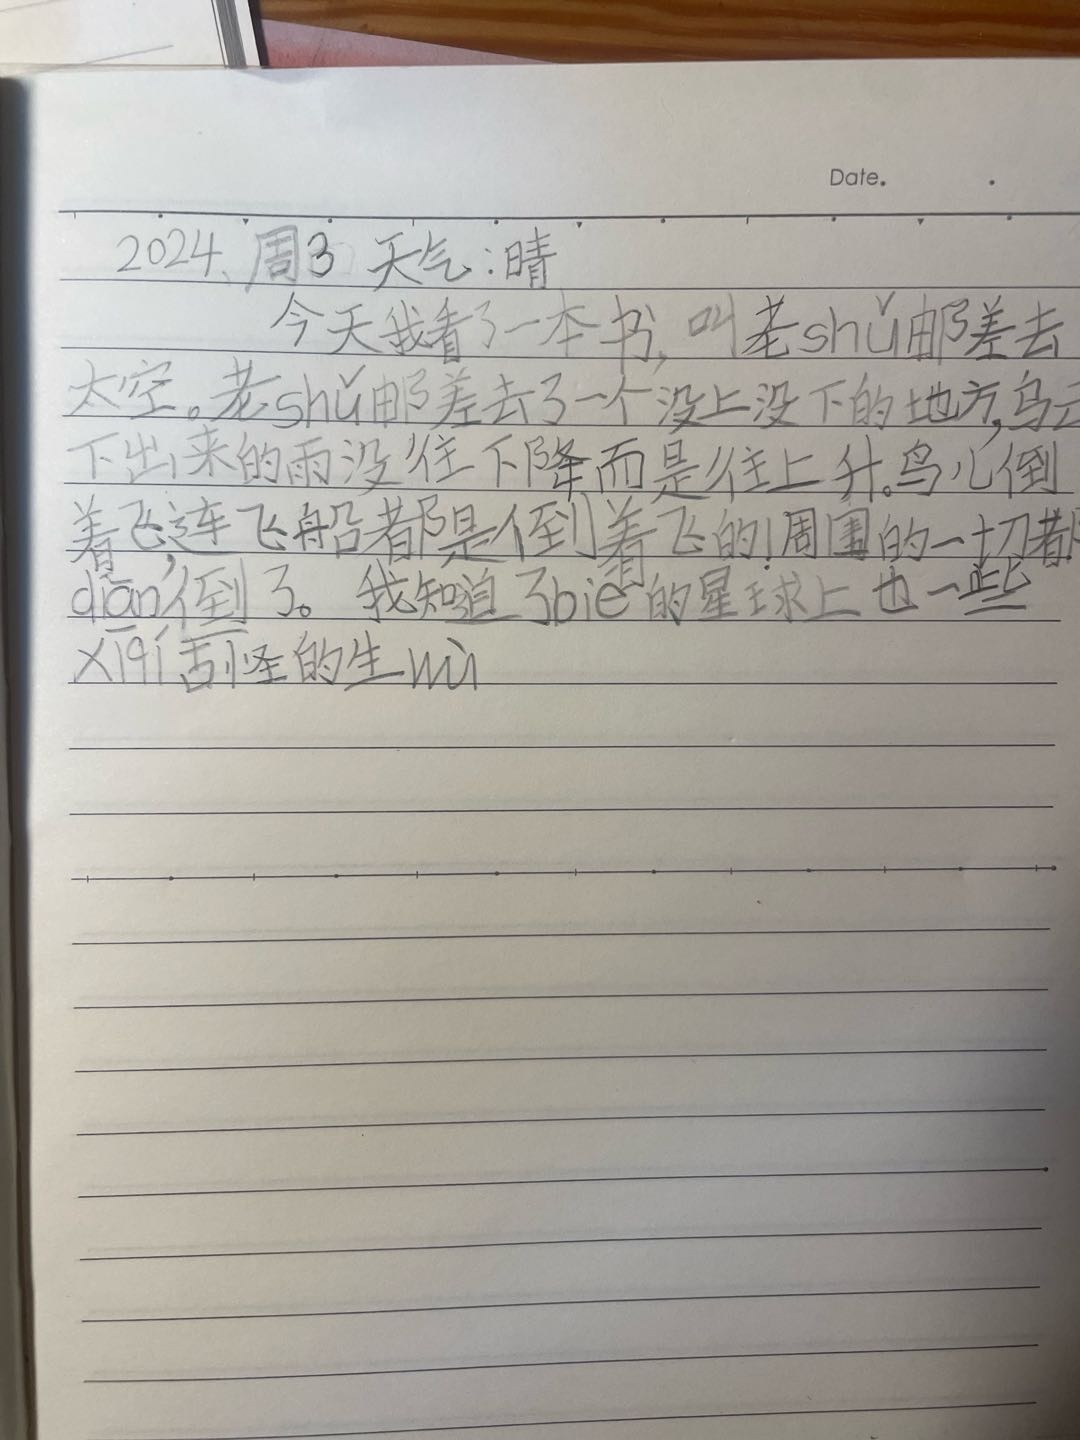 Date.
2024、周3 天气:晴
今天我看了一本书,叫老shǔ邮差去
太空。老shǔ邮差去了一个没上没下的地方,乌云
下出来的雨没往下降而是往上升。鸟儿倒
着飞,连飞船都是倒着飞的!周围的一切都
diān倒了。我知道了bié的星球上也一些
xīqí古怪的生wù